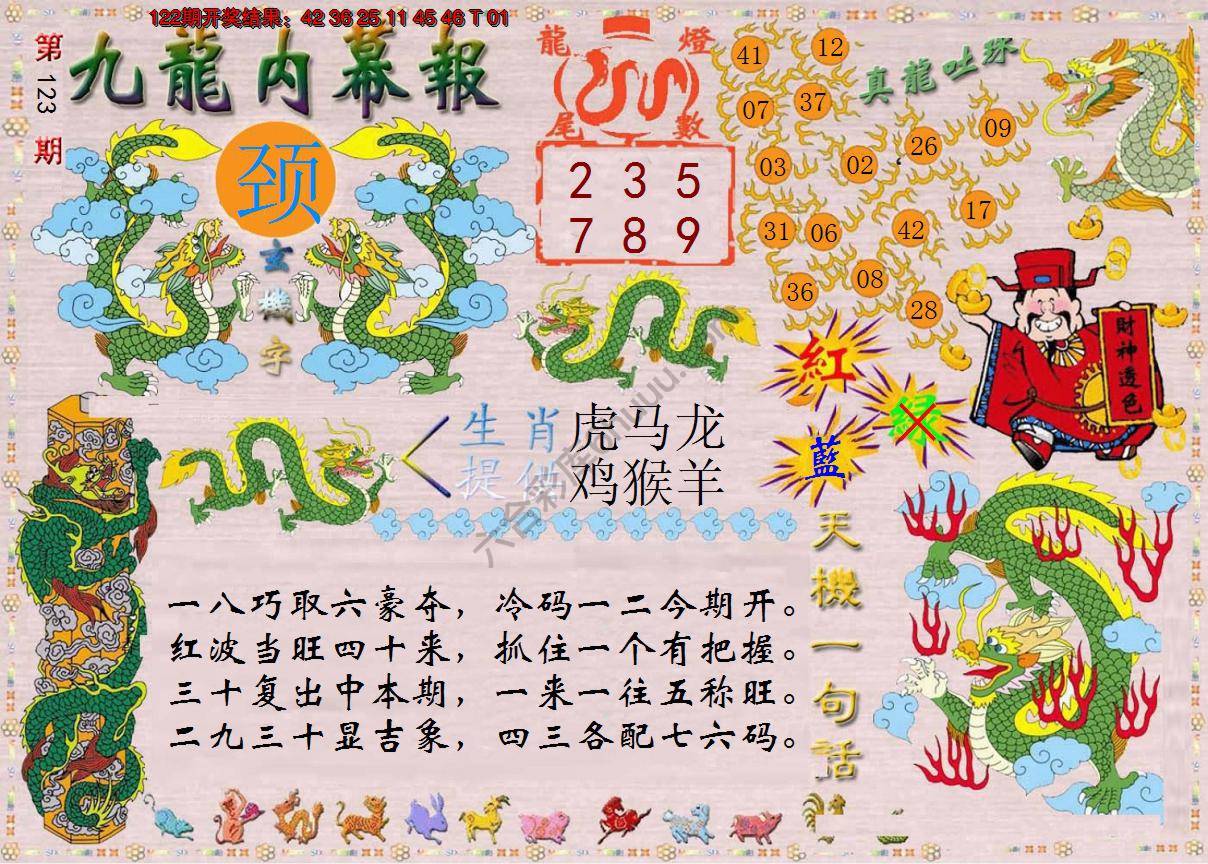 122期开奖结果：42 36 25 11 45 46 T 01
第 123 期
九龍内幕報
颈
玄機字
龍燈
尾數
2 3 5
7 8 9
真龍吐珠
41 12
07 37
03 02 26 09
31 06 42 17
36 08 28
財神透色
紅
綠
藍
生肖 虎马龙
提供 鸡猴羊
天機一句話
一八巧取六豪夺，冷码一二今期开。
红波当旺四十来，抓住一个有把握。
三十复出中本期，一来一往五称旺。
二九三十显吉象，四三各配七六码。